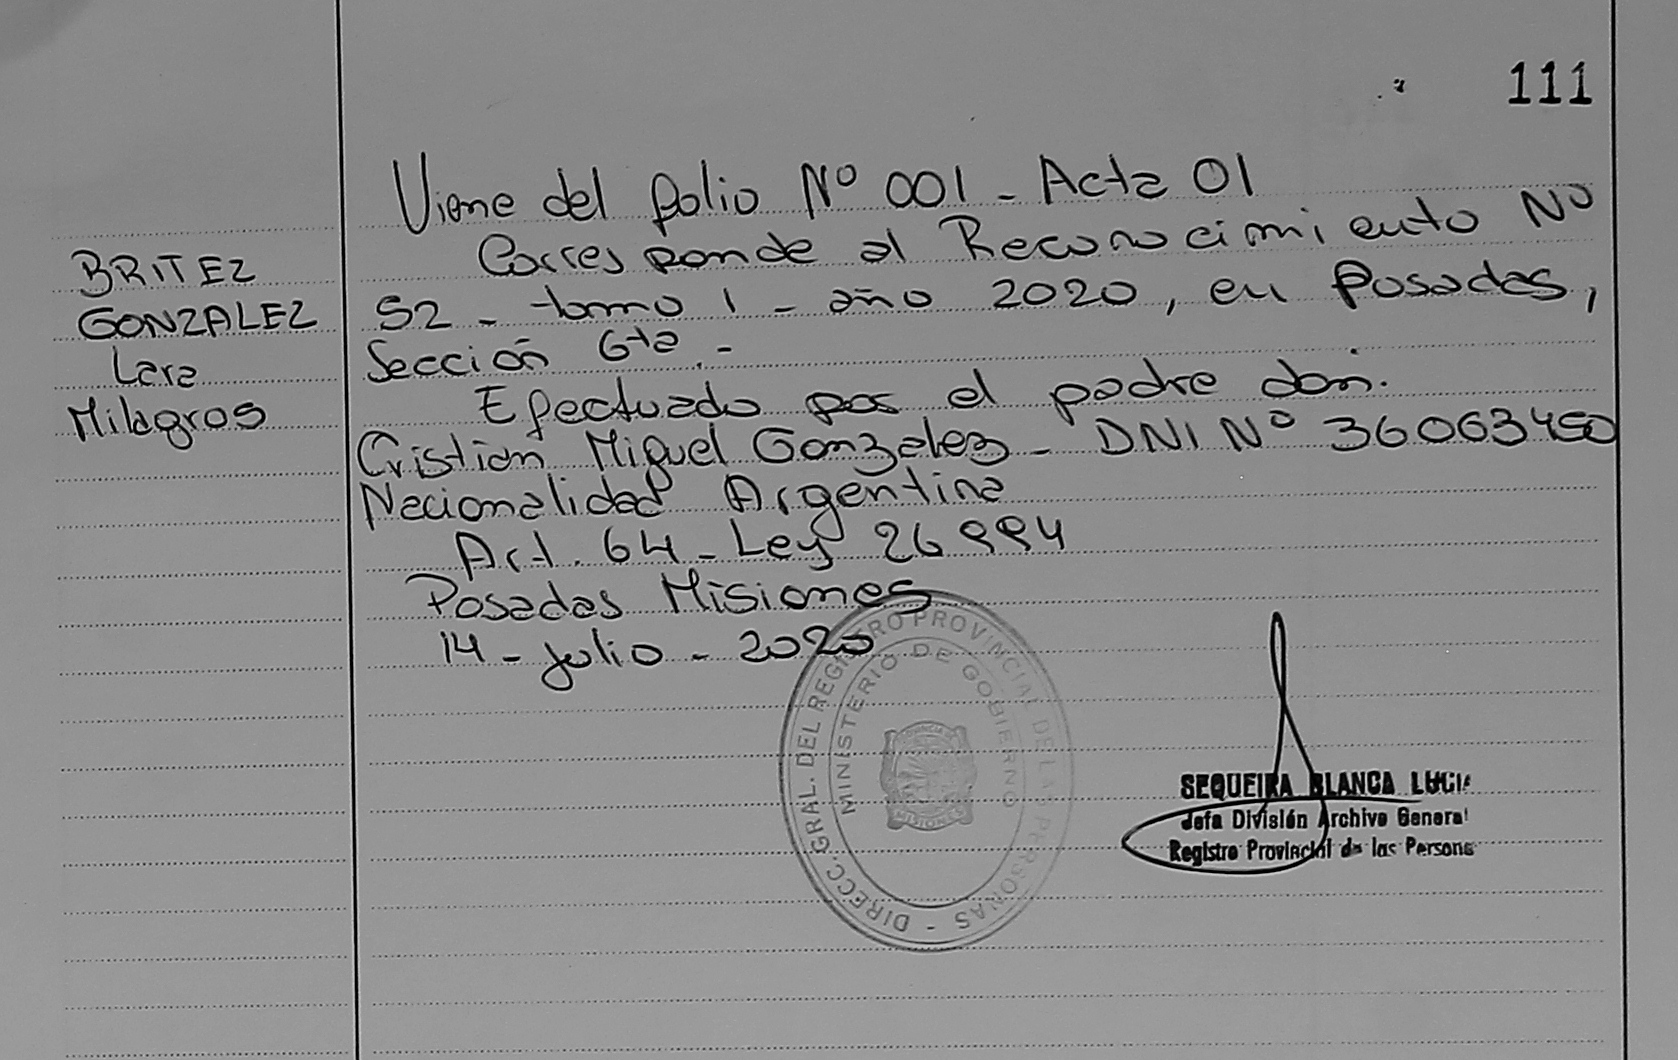 111
Viene del folio Nº 001 - Acta 01
Corresponde al Reconocimiento Nº
BRITEZ
GONZALEZ
Lara
Milagros
52 - tomo 1 - año 2020, en Posadas,
Sección 6ta. -
Efectuado por el padre don.
Cristian Miguel Gonzalez - DNI Nº 36063450
Nacionalidad Argentina
Art. 64 - Ley 26994
Posadas Misiones
14 - Julio - 2020
DIRECC. GRAL. DEL REGISTRO PROVINCIAL DE LAS PERSONAS -
MINISTERIO DE GOBIERNO
MISIONES
SEQUEIRA BLANCA LUCIA
Jefa División Archivo General
Registro Provincial de las Persona